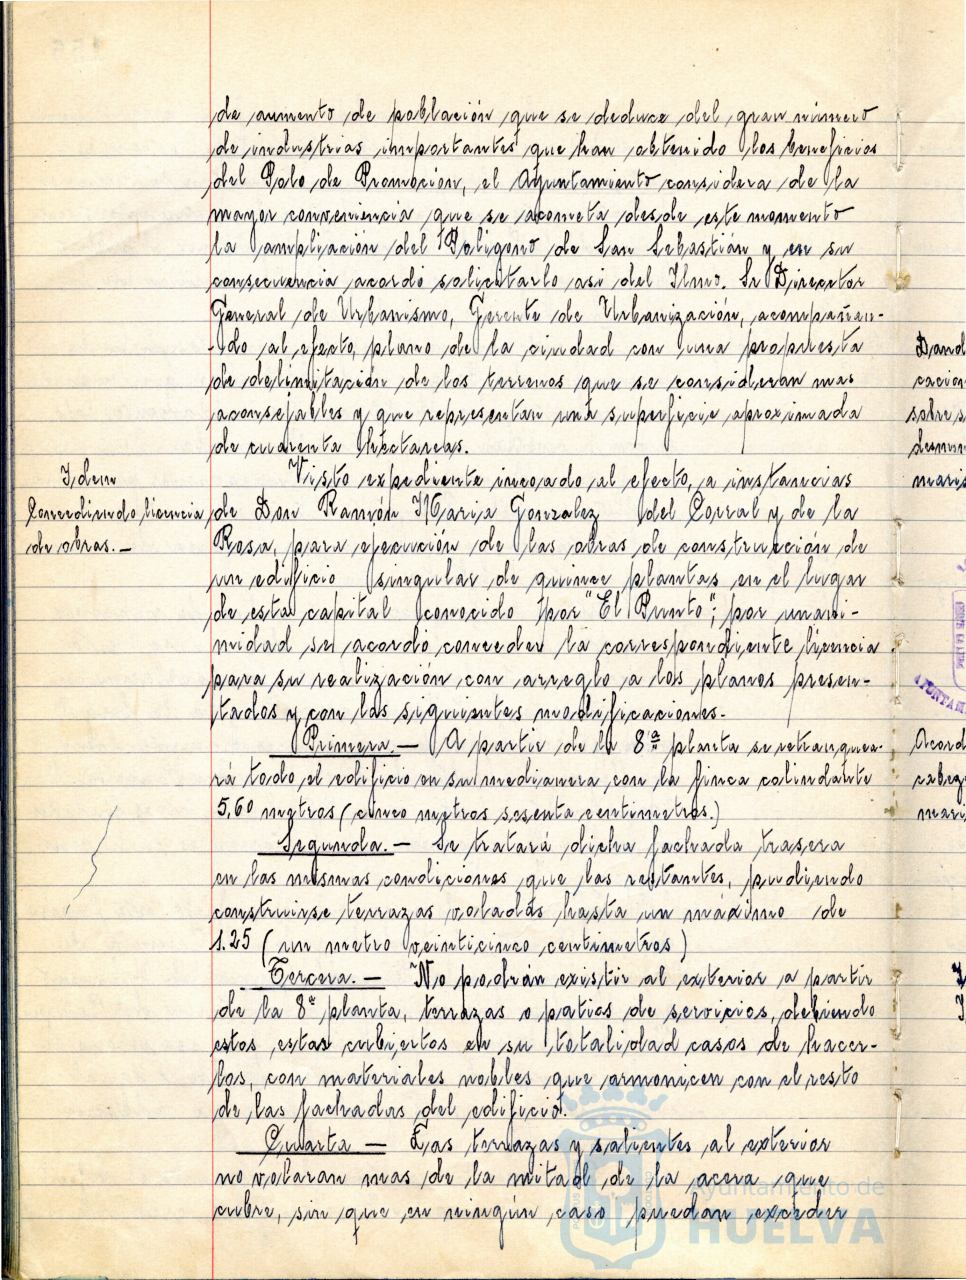 de aumento de población que se deduce del gran número
de industrias importantes que han obtenido los beneficios
del Polo de Promoción, el Ayuntamiento considera de la
mayor conveniencia que se acometa desde este momento
la ampliación del Poligono de San Sebastián y en su
consecuencia acordó solicitarlo asi del Ilmo. Sr Director
General de Urbanismo, Gerente de Urbanización, acompañan-
-do al efecto, plano de la ciudad con una propuesta
de delimitación de los terrenos que se consideran mas
aconsejables y que representan una superficie aproximada
de cuarenta hectareas.
Idem
Concediendo licencia
de obras.-
Visto expediente incoado al efecto, a instancias
de Don Ramón Maria Gonzalez del Corral y de la
Rosa, para ejecución de las obras de construcción de
un edificio singular de quince plantas en el lugar
de esta capital conocido por "El Punto"; por unani-
midad se acordó conceder la correspondiente licencia
para su realización con arreglo a los planos presen-
tados y con las siguientes modificaciones.-
Primera.- A partir de la 8ª planta se retranquea-
rá todo el edificio en su medianera con la finca colindante
5,60 metros (cinco metros sesenta centimetros.)
Segunda.- Se tratará dicha fachada trasera
en las mismas condiciones que las restantes, pudiendo
construirse terrazas voladas hasta un máximo de
1.25 (un metro veinticinco centimetros)
Tercera.- No podrán existir al exterior a partir
de la 8ª planta, terrazas o patios de servicios, debiendo
estos estar cubiertos en su totalidad casos de hacer-
los, con materiales nobles que armonicen con el resto
de las fachadas del edificio.
Cuarta - Las terrazas y salientes al exterior
no volaran mas de la mitad de la acera que
cubre, sin que en ningún caso puedan exceder
Ayuntamiento de
HUELVA